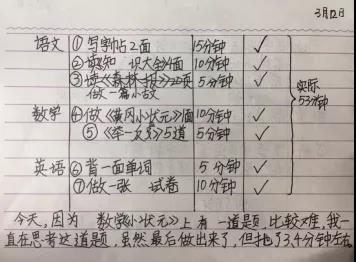 3月12日
语文 ①写字帖2面 15分钟 ✓
②读知识大全4面 10分钟 ✓
③读《森林报》22页 5分钟 ✓
做一篇小 实际
数学 ④做《黄冈小状元》1面 10分钟 ✓ 53分钟
⑤《举一反三》5道 5分钟 ✓
英语 ⑥背一面单词 5分钟 ✓
⑦做一张 试卷 10分钟 ✓
今天,因为 数学《小状元》上有一道是题,比较难,我一
直在思考这道是题,虽然最后做出来了,但花了3,4分钟左右。